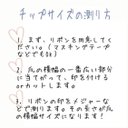 チップサイズの測り方
1. まず、リボンを用意してく
ださい。(マスキングテープ
などでも🆗)
2. 爪の横幅の一番広い部分
に当てがって、印を付ける
orカットします。
3. リボンの印をメジャーな
どで測ります。その長さが爪
の横幅サイズになります!